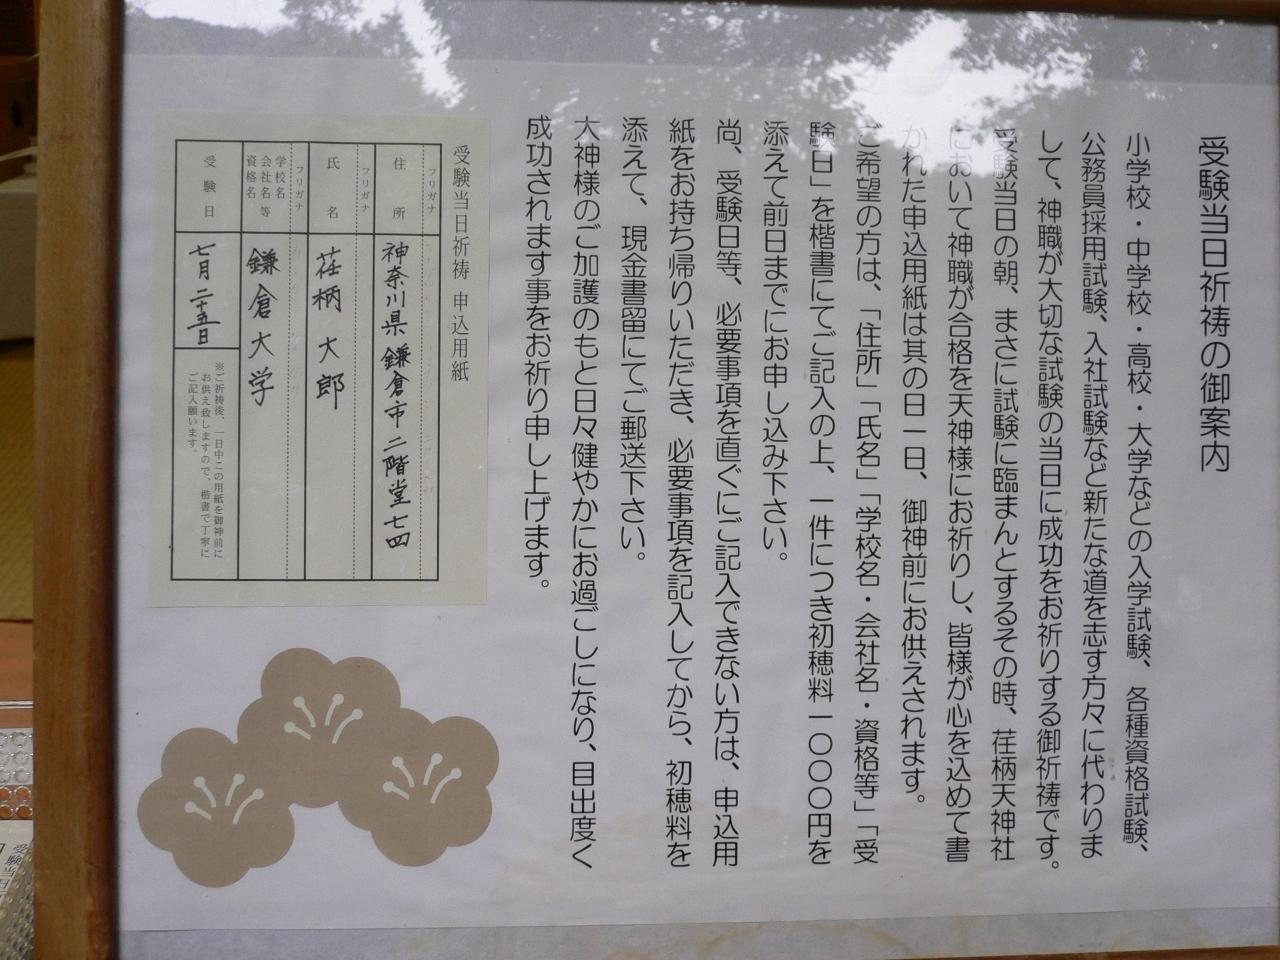 受験当日祈祷の御案内
小学校・中学校・高校・大学などの入学試験、各種資格試験、
公務員採用試験、入社試験など新たな道を志す方々に代わりま
して、神職が大切な試験の当日に成功をお祈りする御祈祷です。
受験当日の朝、まさに試験に臨まんとするその時、荏柄天神社
において神職が合格を天神様にお祈りし、皆様が心を込めて書
かれた申込用紙は其の日一日、御神前にお供えされます。
ご希望の方は、「住所」「氏名」「学校名・会社名・資格等」「受
験日」を楷書にてご記入の上、一件につき初穂料一〇〇〇円を
添えて前日までにお申し込み下さい。
尚、受験日等、必要事項を直ぐにご記入できない方は、申込用
紙をお持ち帰りいただき、必要事項を記入してから、初穂料を
添えて、現金書留にてご郵送下さい。
大神様のご加護のもと日々健やかにお過ごしになり、目出度く
成功されます事をお祈り申し上げます。
受験当日祈祷 申込用紙
フリガナ
住所
神奈川県鎌倉市二階堂七四
フリガナ
氏名
荏柄大郎
フリガナ
学校名
会社名等
資格名
鎌倉大学
受験日
七月二十五日
※ご祈祷後、一日中この用紙を御神前に
お供え致しますので、楷書で丁寧に
ご記入願います。
受験当日